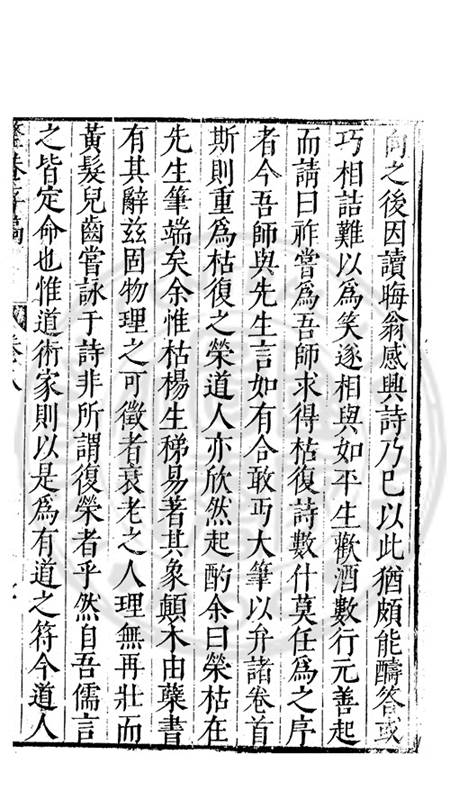 向之後因讀晦翁感興詩乃已以此猶頗能酬答或
巧相詰難以為笑遂相與如平生歡酒數行元善起
而請曰祚嘗為吾師求得枯復詩數什莫任為之序
者今吾師與先生言如有合敢丏大筆以弁諸卷首
斯則重為枯復之榮道人亦欣然起酌余曰榮枯在
先生筆端矣余惟枯楊生稊易著其象顛木由蘖書
有其辭兹固物理之可徵者衰老之人理無再壯而
黃髮兒齒嘗詠于詩非所謂復榮者乎然自吾儒言
之皆定命也惟道術家則以是為有道之符今道人
卷八